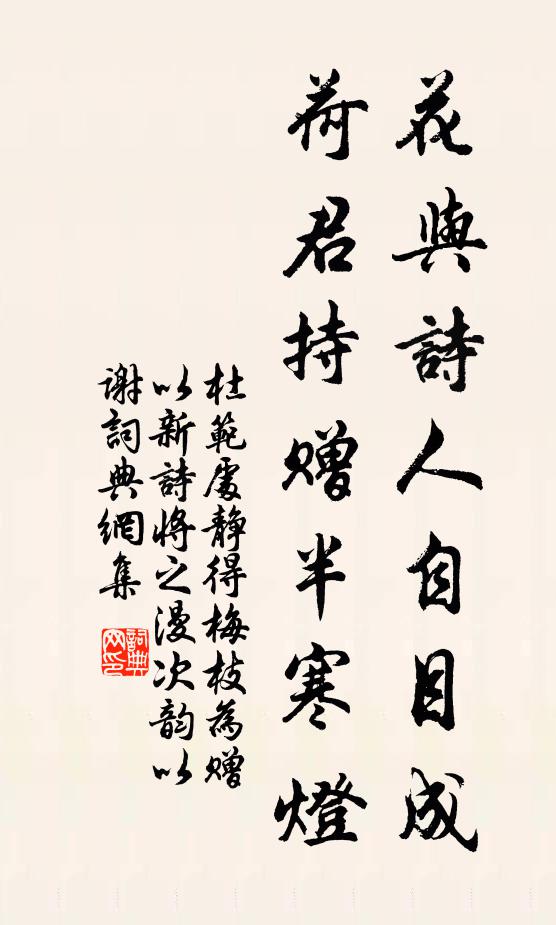 花與詩人自目成
荷君持贈半寒燈
杜範處靜得梅枝為贈
以新詩將之漫次韵以
谢詞典網集
詞典
网印